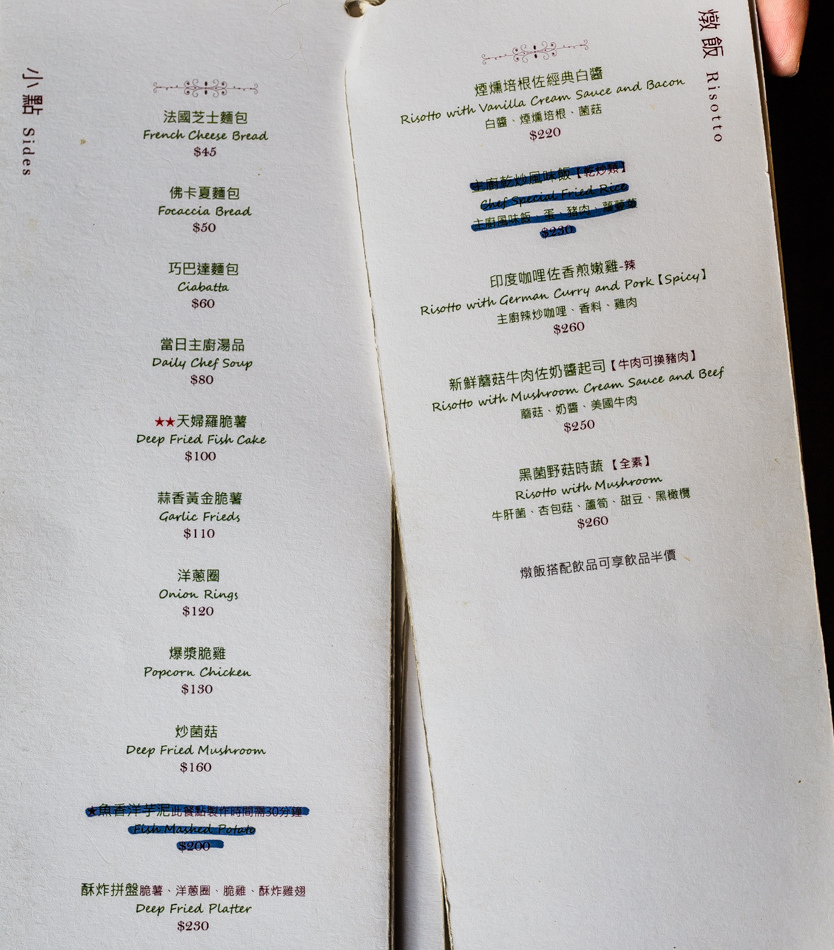 小點 Sides
法國芝士麵包
French Cheese Bread
$45
佛卡夏麵包
Focaccia Bread
$50
巧巴達麵包
Ciabatta
$60
當日主廚湯品
Daily Chef Soup
$80
★★天婦羅脆薯
Deep Fried Fish Cake
$100
蒜香黃金脆薯
Garlic Frieds
$110
洋蔥圈
Onion Rings
$120
爆漿脆雞
Popcorn Chicken
$130
炒菌菇
Deep Fried Mushroom
$160
★魚香洋芋泥此餐點製作時間需30分鐘
Fish Mashed Potato
$200
酥炸拼盤脆薯、洋蔥圈、脆雞、酥炸雞翅
Deep Fried Platter
$230
燉飯 Risotto
煙燻培根佐經典白醬
Risotto with Vanilla Cream Sauce and Bacon
白醬、煙燻培根、菌菇
$220
主廚乾炒風味飯【乾炒類】
Chef Special Fried Rice
主廚風味飯、蛋、豬肉、
$230
印度咖哩佐香煎嫩雞-辣
Risotto with German Curry and Pork【Spicy】
主廚辣炒咖哩、香料、雞肉
$260
新鮮蘑菇牛肉佐奶醬起司【牛肉可換豬肉】
Risotto with Mushroom Cream Sauce and Beef
蘑菇、奶醬、美國牛肉
$250
黑菌野菇時蔬【全素】
Risotto with Mushroom
牛肝菌、杏包菇、蘆筍、甜豆、黑橄欖
$260
燉飯搭配飲品可享飲品半價